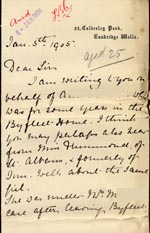 41, Culverden Park,
Tunbridge Wells.
Jan. 5th 1905.
aged 25
Dear Sir
I am writing to you on
behalf of Ann
was for some years in the
Byfleet Home. I think
you may perhaps also hear
from Miss Hammond of
St. Albans, & formerly of
Tun. Wells about the same
girl.
She was under my
care after leaving Byfleet